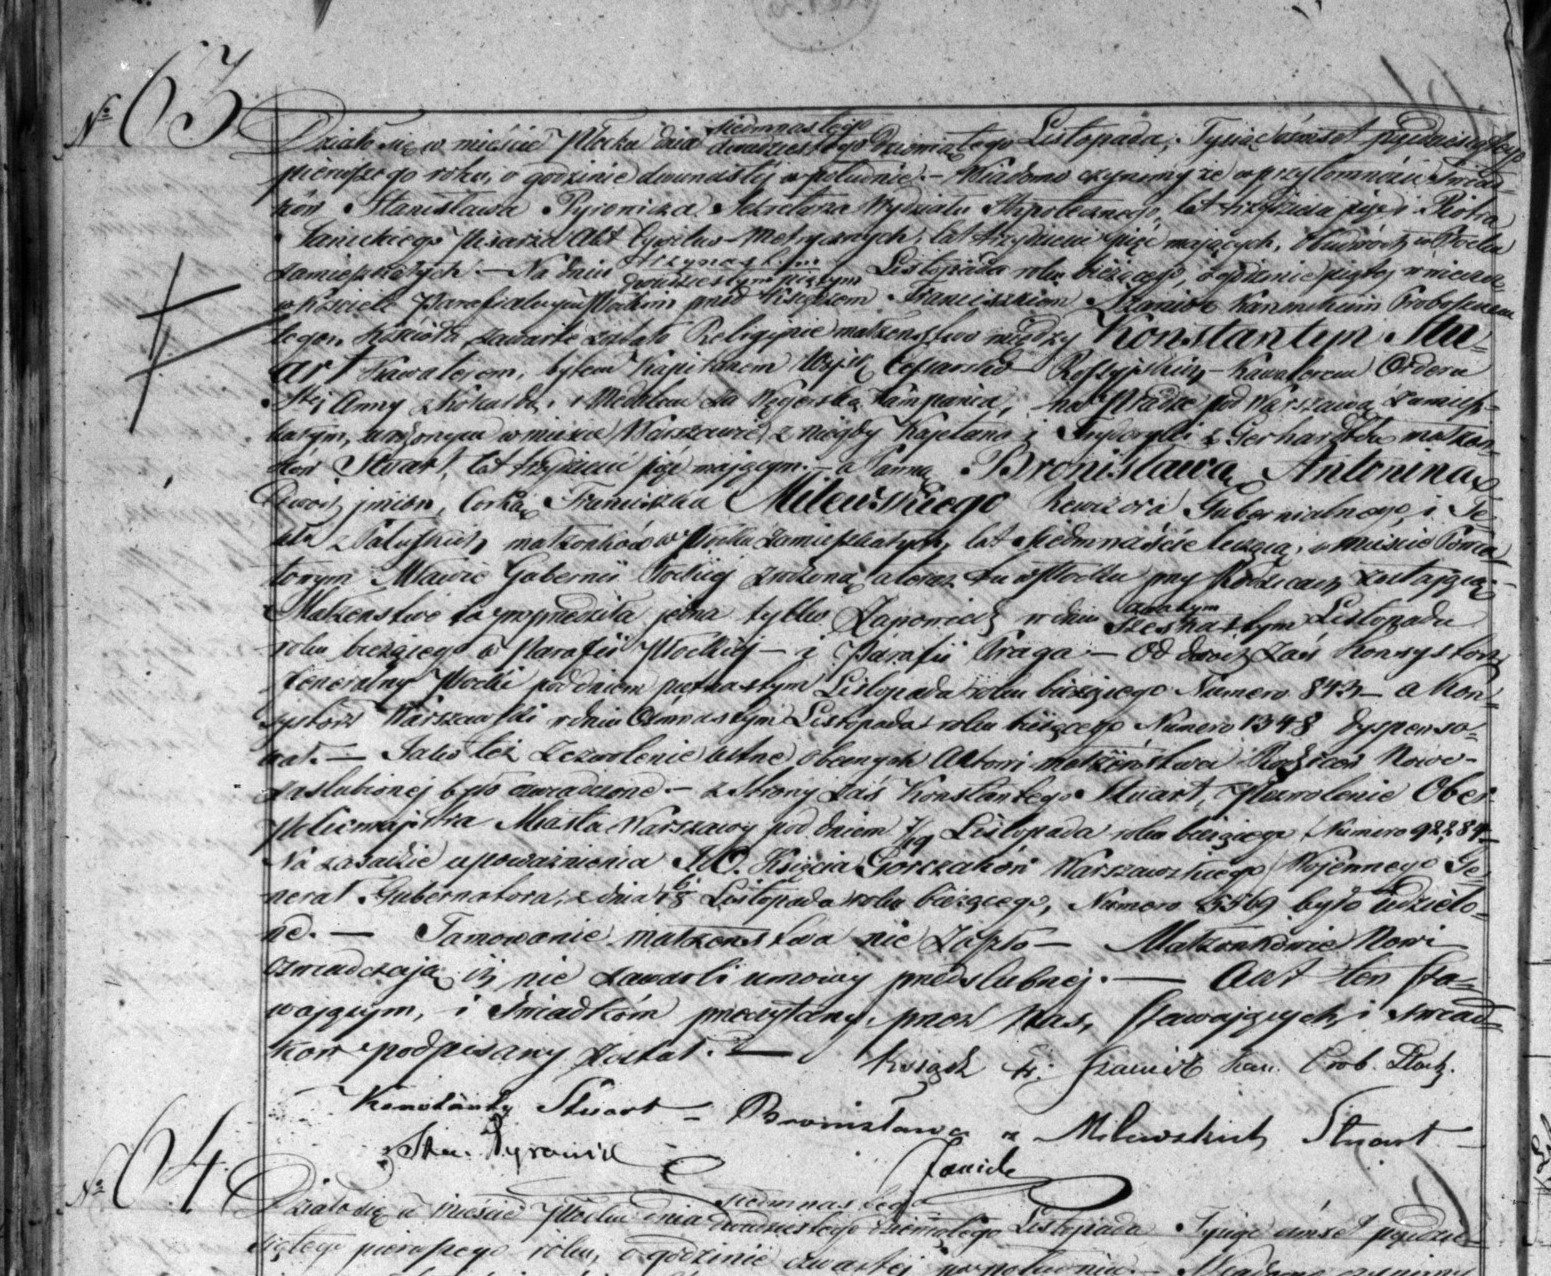 № 63
Działo się w mieście Płocku dnia siedmnastego dwudziestego dziewiątego Listopada, Tysiąc ośmset pięćdziesiątego
pierwszego roku, o godzinie dwunastej w południe. – Wiadomo czynimy że w przytomności Świad-
ków Stanisława Pyrowicza Sekretarza Wydziału lat trzydzieści pięć i Piotra
Janickiego Pisarza Akt Cywilno-Metrycznych, lat trzydzieści pięć mających, obudwóch w Płocku
zamieszkałych. – Na dniu trzynastym dwudziestym piątym Listopada roku bieżącego, o godzinie piątej wieczo-
w Kościele Parafialnym Płockim przed Księdzem Franciszkiem Kanonikiem Proboszczem
tegoż Kościoła zawarte zostało Religijnie małżeństwo między Konstantym Stu-
art Kawalerem, byłym Kapitanem Wojsk Cesarsko Rossyjskich – Kawalerem Orderu
Stej Anny z Kokardą, i Medalem za Węgierską Kampanią, na Pradze pod Warszawą zamiesz-
kałym, urodzonym w mieście Warszawie, z niegdy Kajetana i Fryderyki z Gerhardtów małżon-
ków Stuart, lat trzydzieści pięć mającym. – a Panną Bronisławą Antoniną
dwóch imion, Córką Franciszka Milewskiego Rewizora Gubernialnego, i Te-
kli z małżonków w Płocku zamieszkałych, lat siedmnaście liczącą, w mieście Powia-
towym Mławie Gubernii Płockiej zrodzoną, a teraz tu w Płocku przy Rodzicach zostającą.
Małżeństwo to poprzedziła jedna tylko Zapowiedź w dniu czwartym szesnastym Listopada
roku bieżącego w Parafii Płockiej – i Parafii Praga – Od dwóch zaś Konsystorz
Jeneralny Płocki pod dniem piętnastym Listopada roku bieżącego Numero 843 – a Kon-
systorz Warszawski w dniu Ośmnastym Listopada roku bieżącego Numero 1348 dyspenso-
wał. – Jako też zezwolenie ustne obecnych Aktowi małżeństwa Rodziców Nowo-
zaślubionej było oświadczone – z strony zaś Konstantego Stuart, Pozwolenie Ober
Policmajstra Miasta Warszawy pod dniem 7/19 Listopada roku bieżącego Numero 92284
Na zasadzie upoważnienia J. O. Księcia Gorczakow Warszawskiego Wojennego Ge-
nerał Gubernatora, z dnia 6/18 Listopada roku bieżącego, Numero 5569 było udzielo-
ne. – Tamowanie małżeństwa nie zaszło – Małżonkowie Nowi
oświadczają iż nie zawarli umowy przedślubnej. – Akt ten Sta-
wającym, i Świadkom przeczytany przez Nas, Stawających i Świad-
ków podpisany został. –
Ksiądz Fr. Kan. Prob. Płock.
Konstanty Stuart – Bronisława z Milewskich Stuart –
Stan. Pyrowicz Janicki
№ 64
Działo się w Mieście Płocku dnia siedmnastego dwudziestego dziewiątego Listopada Tysiąc ośmset pięćdzie-
siątego pierwszego roku, o godzinie czwartej po południu. – Wiadomo czynimy